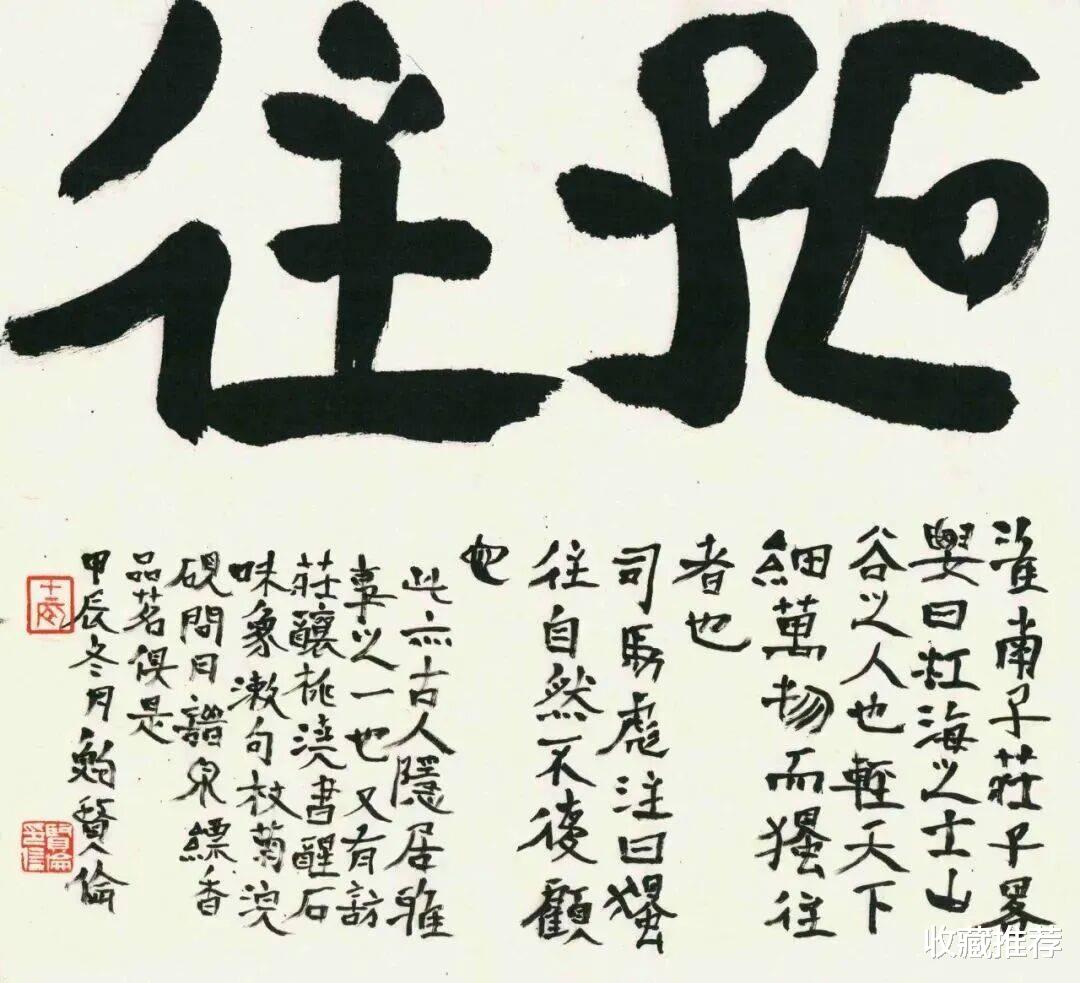 獨往
淮南子莊子畧
要曰江海之士山
谷之人也輕天下
細萬物而獨往
者也
司馬彪注曰獨
往自然不復顧
也
此亦古人隱居雅
事之一也又有訪
莊釀桃澆書醒石
味象漱句杖菊浣
硯問月譜泉縹香
品茗俱是
甲辰冬月鮑賢倫
賢倫印信
收藏推荐